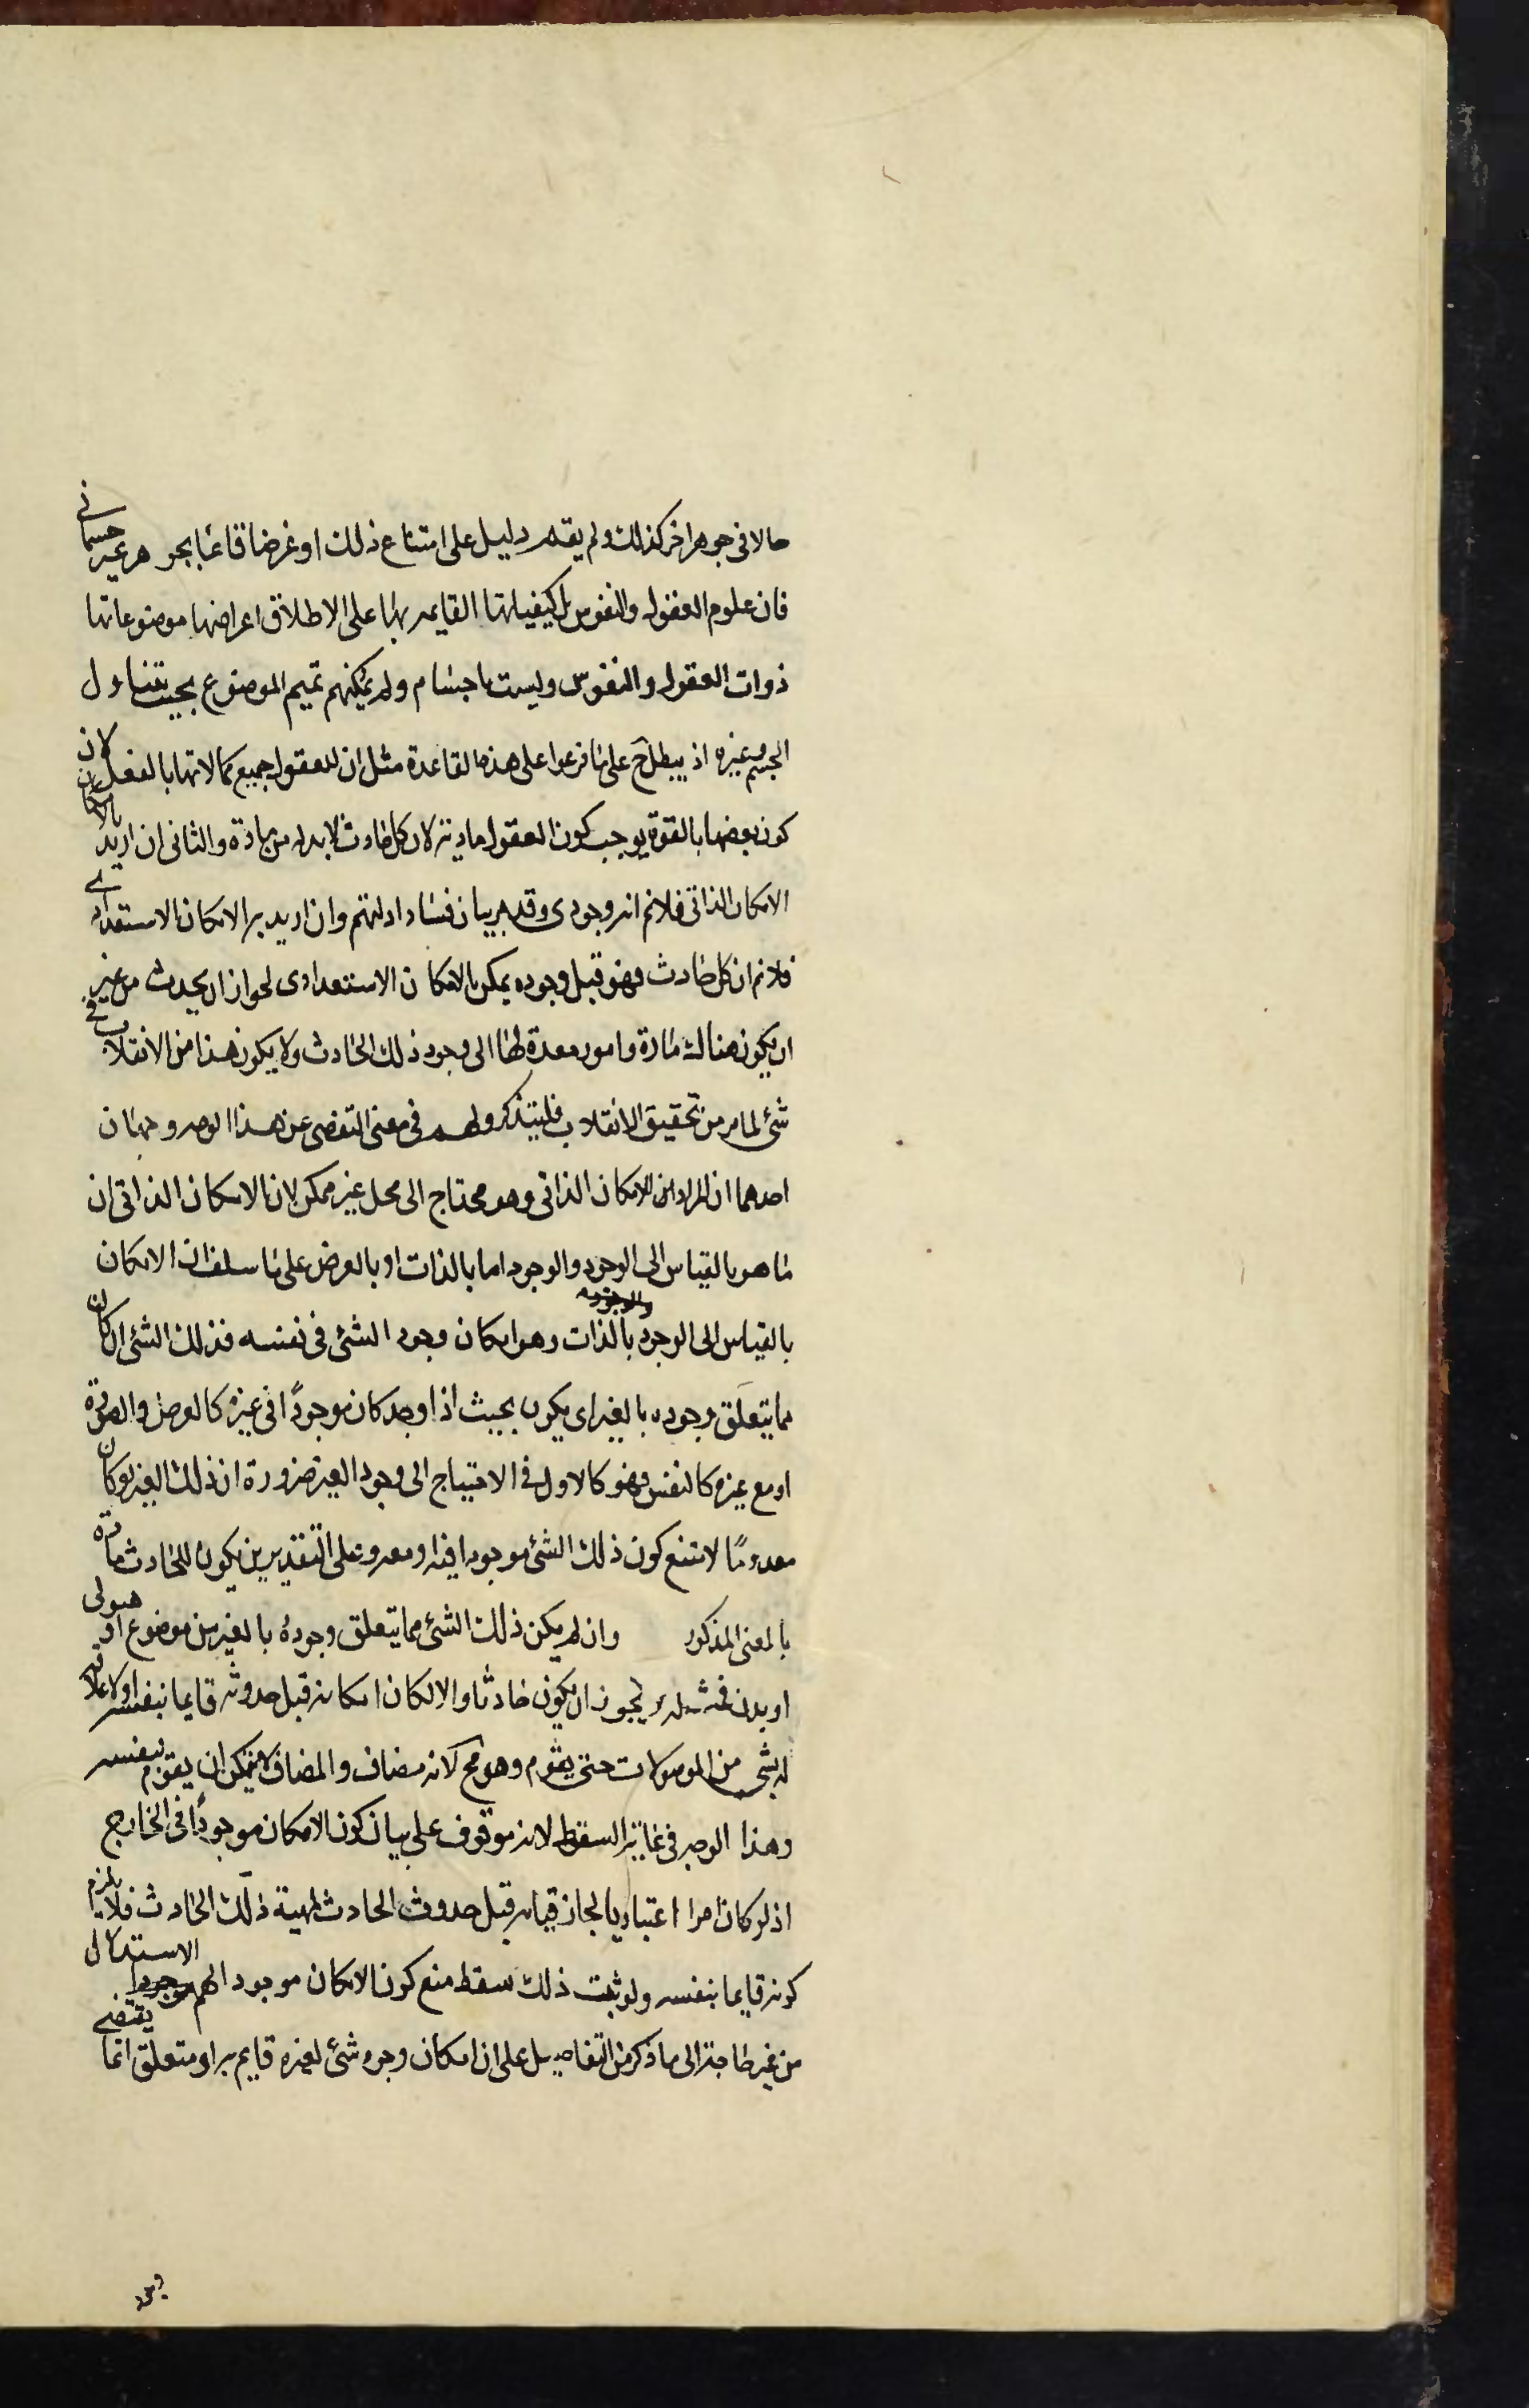 حالا فى جوهر اخر كذلك ولم يقم دليل على امتناع ذلك او عرضا قائما بجوهر غير جسمانى
فان علوم العقول والنفوس بل كيفياتها القايمه بها على الاطلاق اعراضها موضوعاتها
ذوات العقول والنفوس وليست باجسام ولم يمكنهم تعميم الموضوع بحيث يتناول
الجسم وغيره اذ يبطل ح على ما فرعوا على هذه القاعدة مثل ان للعقول جميع كمالاتها بالفعل لان
كون بعضها بالقوة يوجب كون العقول مادية لان كل حادث لابد له من مادة والثانى ان اريد بالامكان
الامكان الذاتى فلانم انه وجودى وقد مر بيان فساد ادلتهم وان اريد به الامكان الاستعدادى
فلانم ان كل حادث فهو قبل وجوده يمكن بالامكان الاستعدادى لجواز ان يحدث من غير
ان يكون هناك مادة وامور معدة لها الى وجود ذلك الحادث ولا يكون هذا من الانقلاب فى
شئ لما مر من تحقيق الانقلاب فليتذكر ولهم فى معنى التفصى عن هذا الوجه وجهان
احدهما ان المراد الامكان الذاتى وهو محتاج الى محل غير ممكن لان الامكان الذاتى ان
ما هو بالقياس الى الوجود والوجود اما بالذات او بالعرض على ما سلف ان الامكان
بالقياس الى الوجود بالذات وهو امكان وجود الشئ فى نفسه فذلك الشئ ان كان
مما يتعلق وجوده بالغير اى يكون بحيث اذا وجد كان موجودًا فى غيره كالعرض والصورة
او مع غيره كالنفس فهو كالاول فى الاحتياج الى وجود الغير ضرورة ان ذلك الغير لو كان
معدومًا لامتنع كون ذلك الشئ موجودا فيه او معه وعلى التقديرين يكون للحادث مادة
بالمعنى المذكور وان لم يكن ذلك الشئ مما يتعلق وجوده بالغير من موضوع او هيولى
او بدن يجوز ان يكون حادثا والا لكان امكانه قبل حدوثه قايما بنفسه اولا علاقة
له بشئ من الموضوعات حتى يقوم وهو مح لانه مضاف والمضاف لا يمكن ان يقوم بنفسه
وهذا الوجه فى غاية السقوط لانه موقوف على بيان كون الامكان موجودًا فى الخارج
اذ لو كان امرا اعتباريا لجاز قيامه قبل حدوث الحادث لمهية ذلك الحادث فلا يلزم
كونه قايما بنفسه ولو ثبت ذلك سقط منع كون الامكان موجودا لهم الاستدلال
من غير حاجة الى ما ذكر من التفاصيل على ان امكان وجود شئ لغيره قايم به او متعلق انما يقتضى